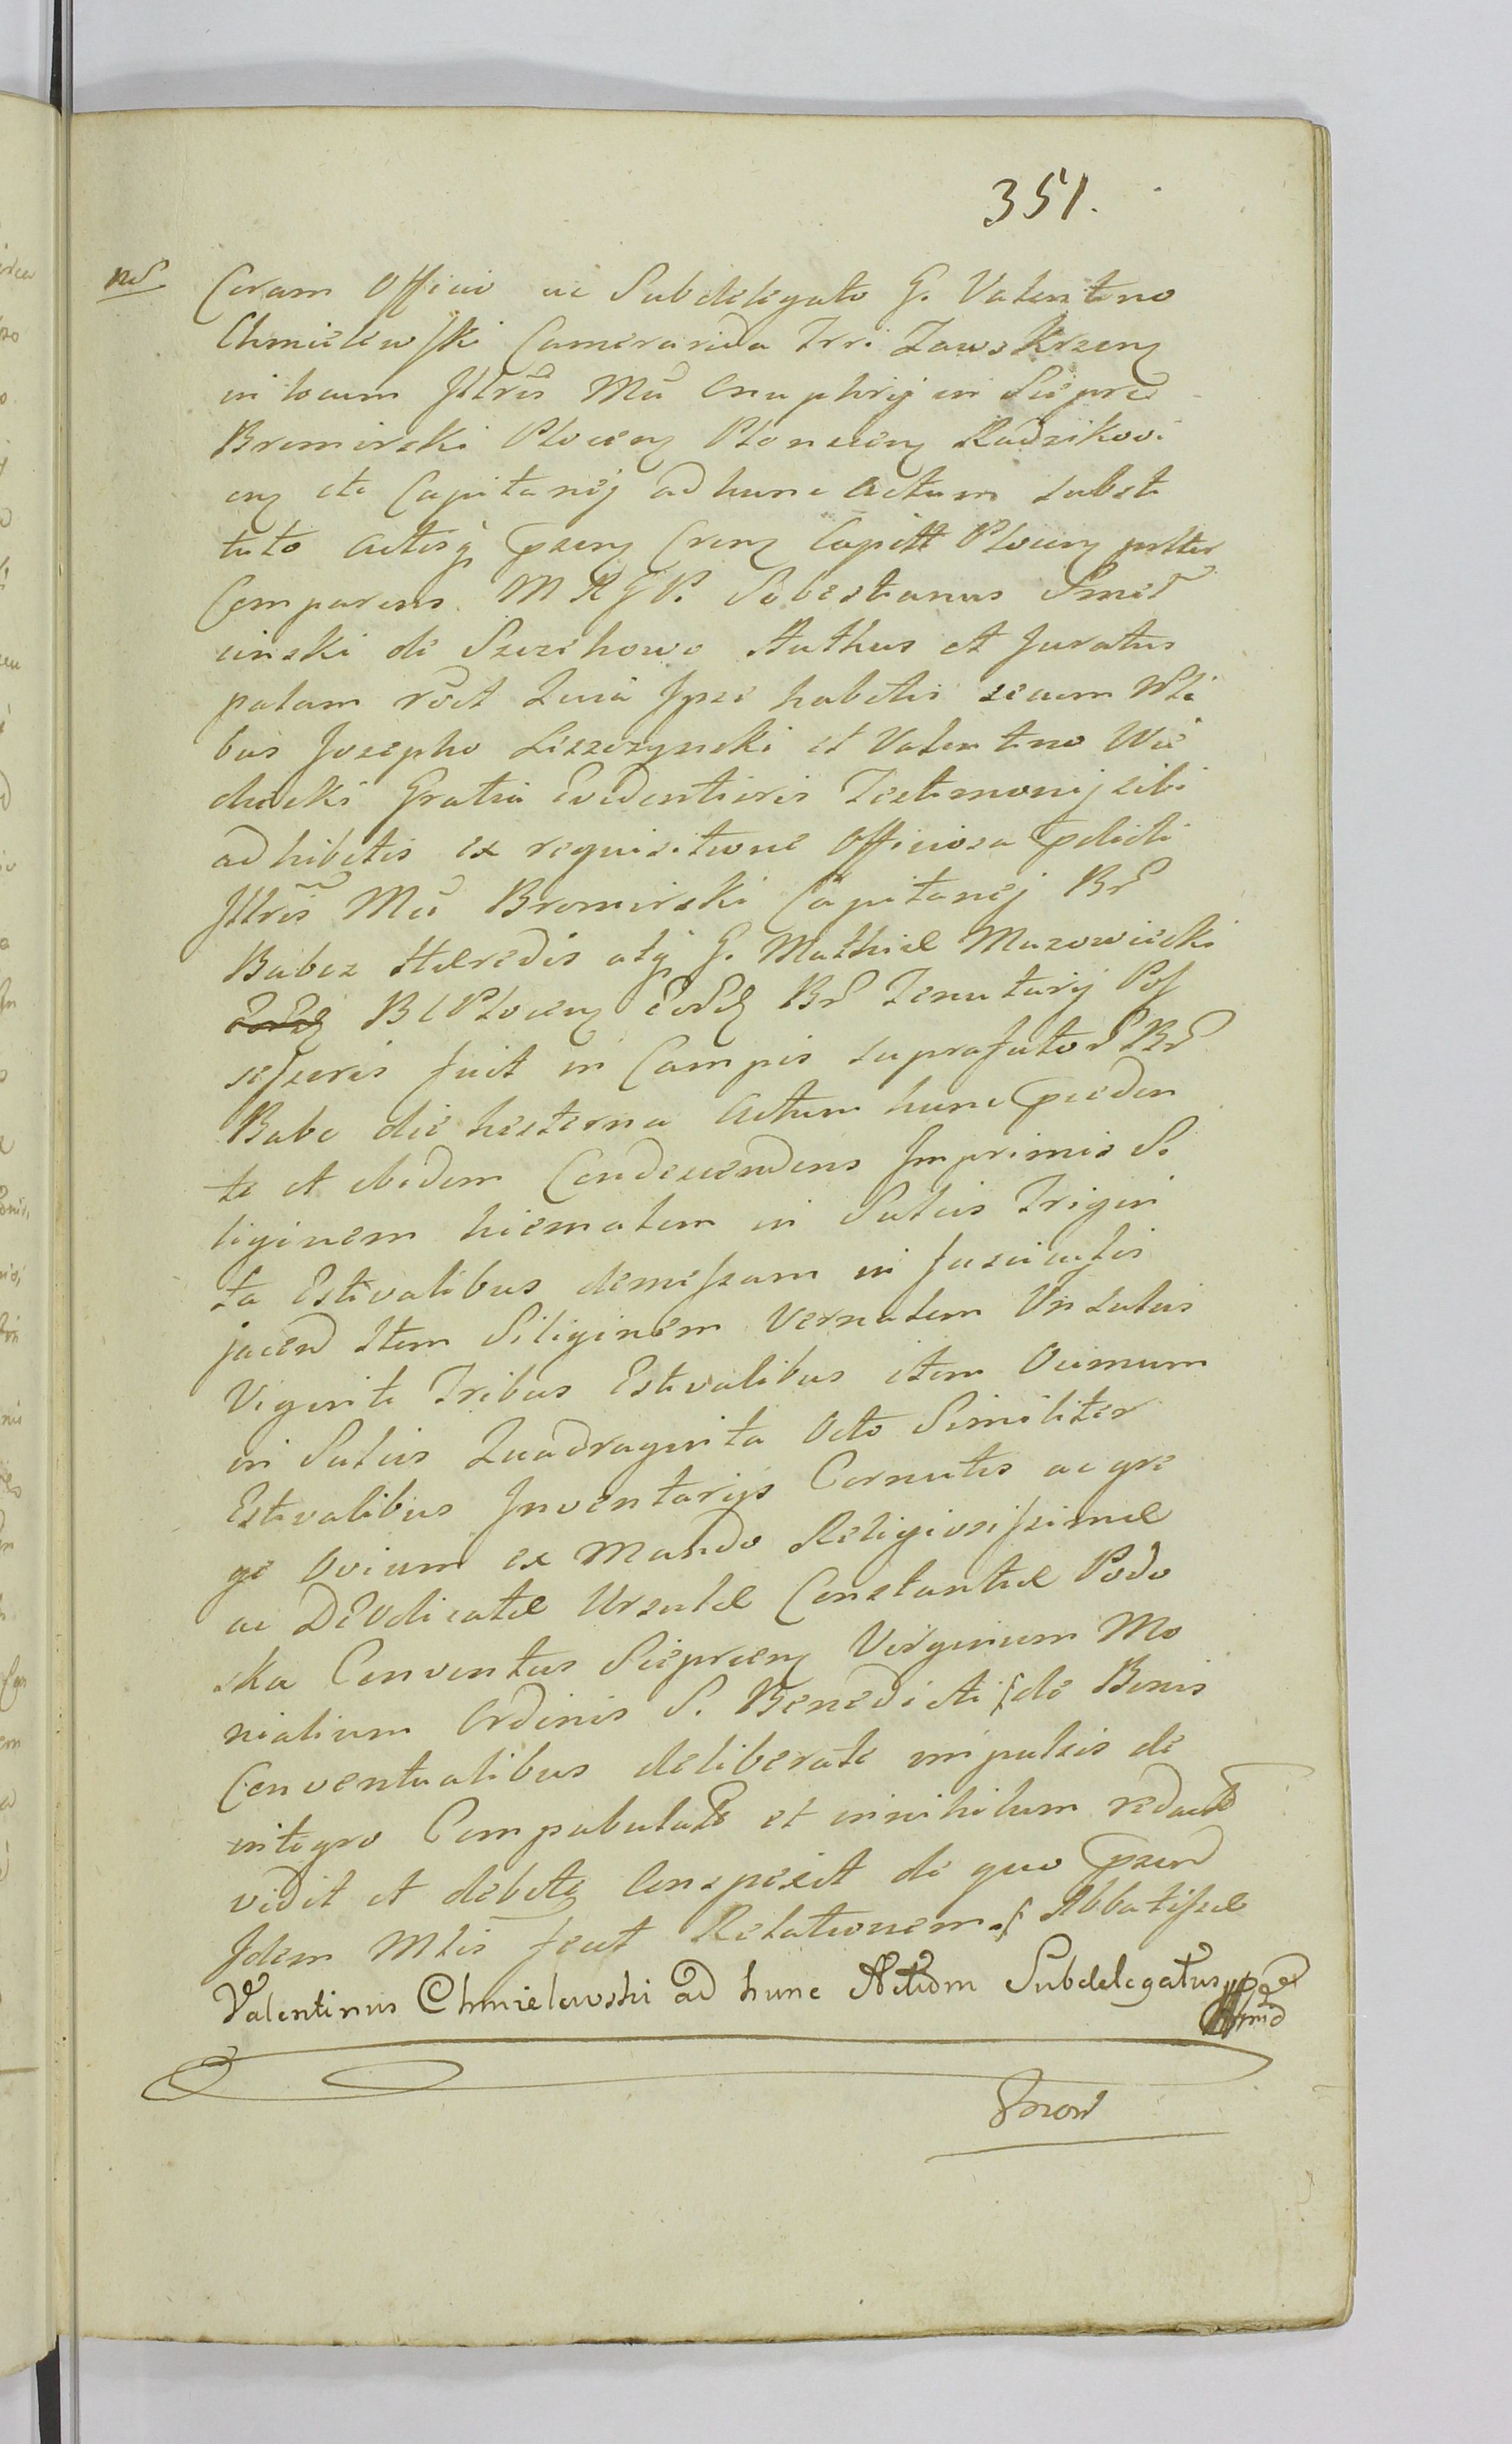 351.
Coram Officio ac Subdelegato G. Valentino
Chmielewski Camerarida Trri Zawskrzeng
in locum Illris Mci Onuphrij in Sieprc
Bromirski Plocen Plonscen Radzikovi
en etc Capitanej ad hunc Actum substi
tuto Actisq pzen Cren Capitt Plocen prltter
Comparens M R G P. Sebestianus Smar
cinski de Szczechowo Authus et Juratus
palam rdct Quia Ipse habitis secum Nli
bus Josepho Liszczynski et Valentino Wie
chucki Gratia Evidentioris Testimonij sibi
adhibitis ex requisitione Officiosa pdicti
Illris Mci Bromirski Capitanej Br
Babez Hæredis atq G. Mathiæ Mazowiecki
B C Plocen Eord Br Tenutarij Pos
sessoris fuit in Campis suprafator Br
Babe die hesterna Actum hunc pceden
te et ibidem Condescendens Imprimis Si
liginem hiemalem in Sulcis Trigin
ta Estivalibus demessam in fasciculis
jacen Item Siliginem Vernalem in sulcis
Viginti Tribus Estivalibus item Ocimum
in Sulcis Quadraginta Octo Similiter
Estivalibus Inventarijs Cornutis ac gre
ge Ovium ex Mando Religiosissimæ
ac DEOdicatæ Ursulæ Constantiæ Podo
ska Conventus Sieprcen Virginum Mo
nialium Ordinis S. Benedicti de Bonis
Conventualibus deliberate impulsis de
integro Compabulato et in nihilum redacto
vidit et debite Conspexit de quo pzen
Idem Mlis fecit Relationem. Abbatissæ
Valentinus Chmielewski ad hunc Actum Subdelegatus